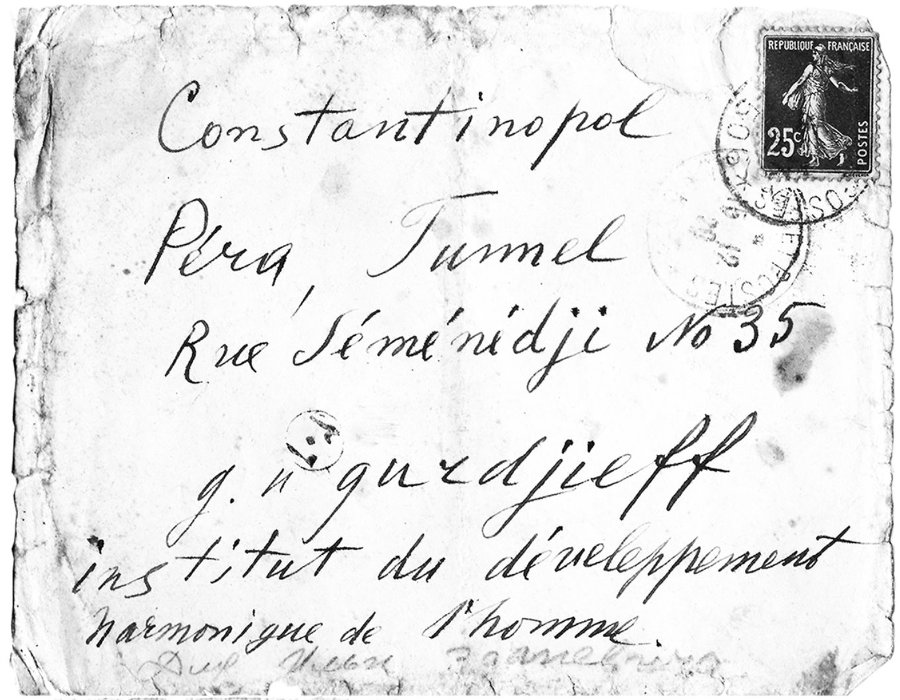 RÉPUBLIQUE FRANÇAISE
25c
POSTES
Constantinopol
Péra, Tunnel
Rue Séménédji No 35
g. n gurdjieff
institut du déveleppement
harmonique de l'homme.